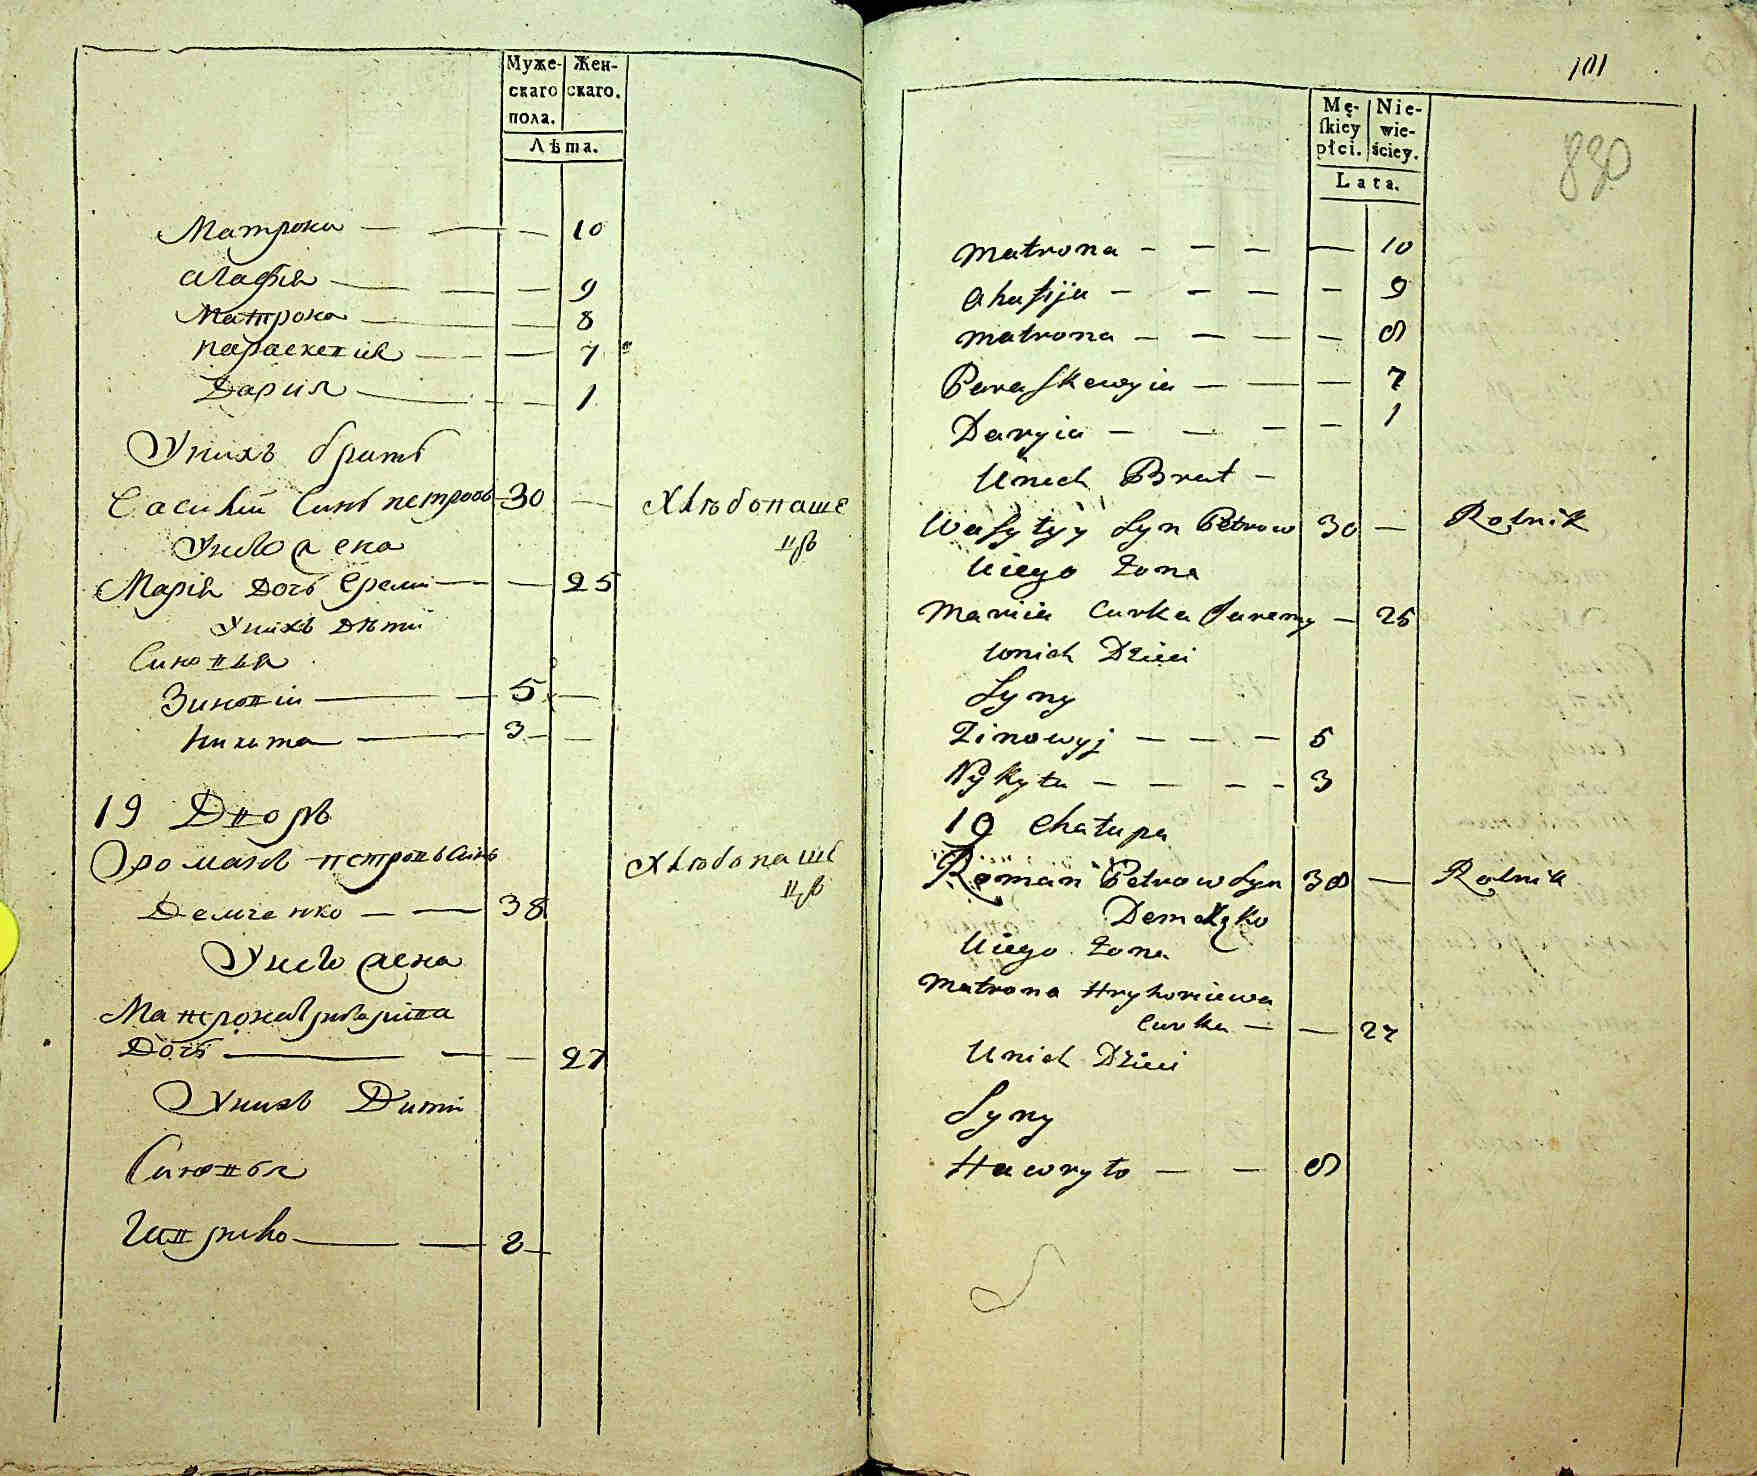 Муже-
скаго
пола.
Жен-
скаго.
Лѣта.
Матрона — — — 10
Агафія — — — 9
Матрона — — 8
Параскевия — — — 7
Дария — — 1
Унихъ братъ
Василий Синъ петровъ 30 — Хлѣбопаше
цъ
Унего жена
Марія Дочь Ереми — — 25
Унихъ Дѣти
Синовья
Зиновій — — 5 —
Никита — 3 — —
19 Дворъ
Романъ петровъ Синъ Хлѣбопаше
цъ
Демченко — — 38
Унего жена
Матрона Григориева
Дочь — — — 27
Унихъ Дити
Синовья
Гаврило — — 8 —
101
830
Mę-
ſkiey
płci.
Nie-
wie-
ściey.
Lata.
Matrona — — — — 10
Ahafija — — — — 9
Matrona — — — — 8
Paraſkewyia — — — 7
Daryia — — — — 1
Unich Brat —
Waſyłyy Syn Petrow 30 — Rolnik
Uiego Żona
Maruia Curka Jaremy — 25
Unich Dzieci
Syny
Zinowyj — — — 5
Nykyta — — — — 3
19 Chałupa
Roman Petrow Syn 38 — Rolnik
Uiego Żona
Matrona Hryhoriewa
Curka — — 27
Unich Dzieci
Syny
Hawryło — — 8